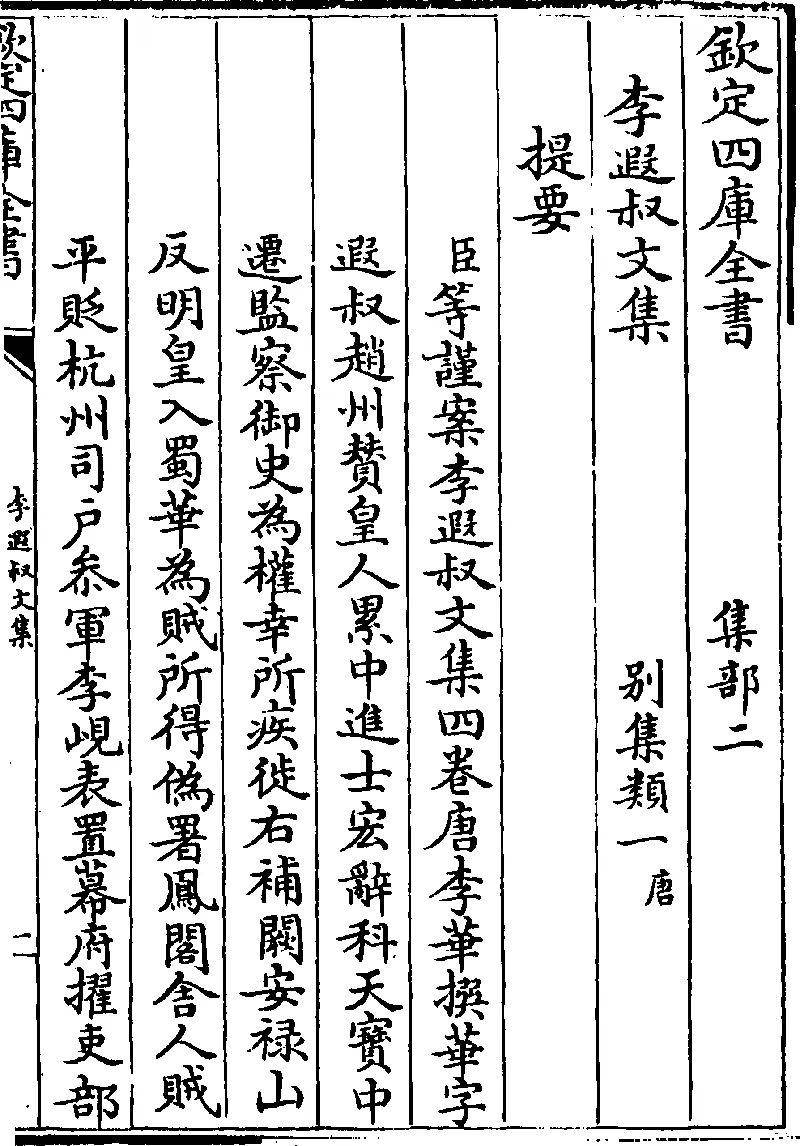 欽定四庫全書　集部二
李遐叔文集　別集類一唐
提要
臣等謹案李遐叔文集四卷唐李華撰華字
遐叔趙州贊皇人累中進士宏辭科天寶中
遷監察御史為權幸所疾徙右補闕安禄山
反明皇入蜀華為賊所得偽署鳳閣舍人賊
平貶杭州司户叅軍李峴表置幕府擢吏部
欽定四庫全書
李遐叔文集
二